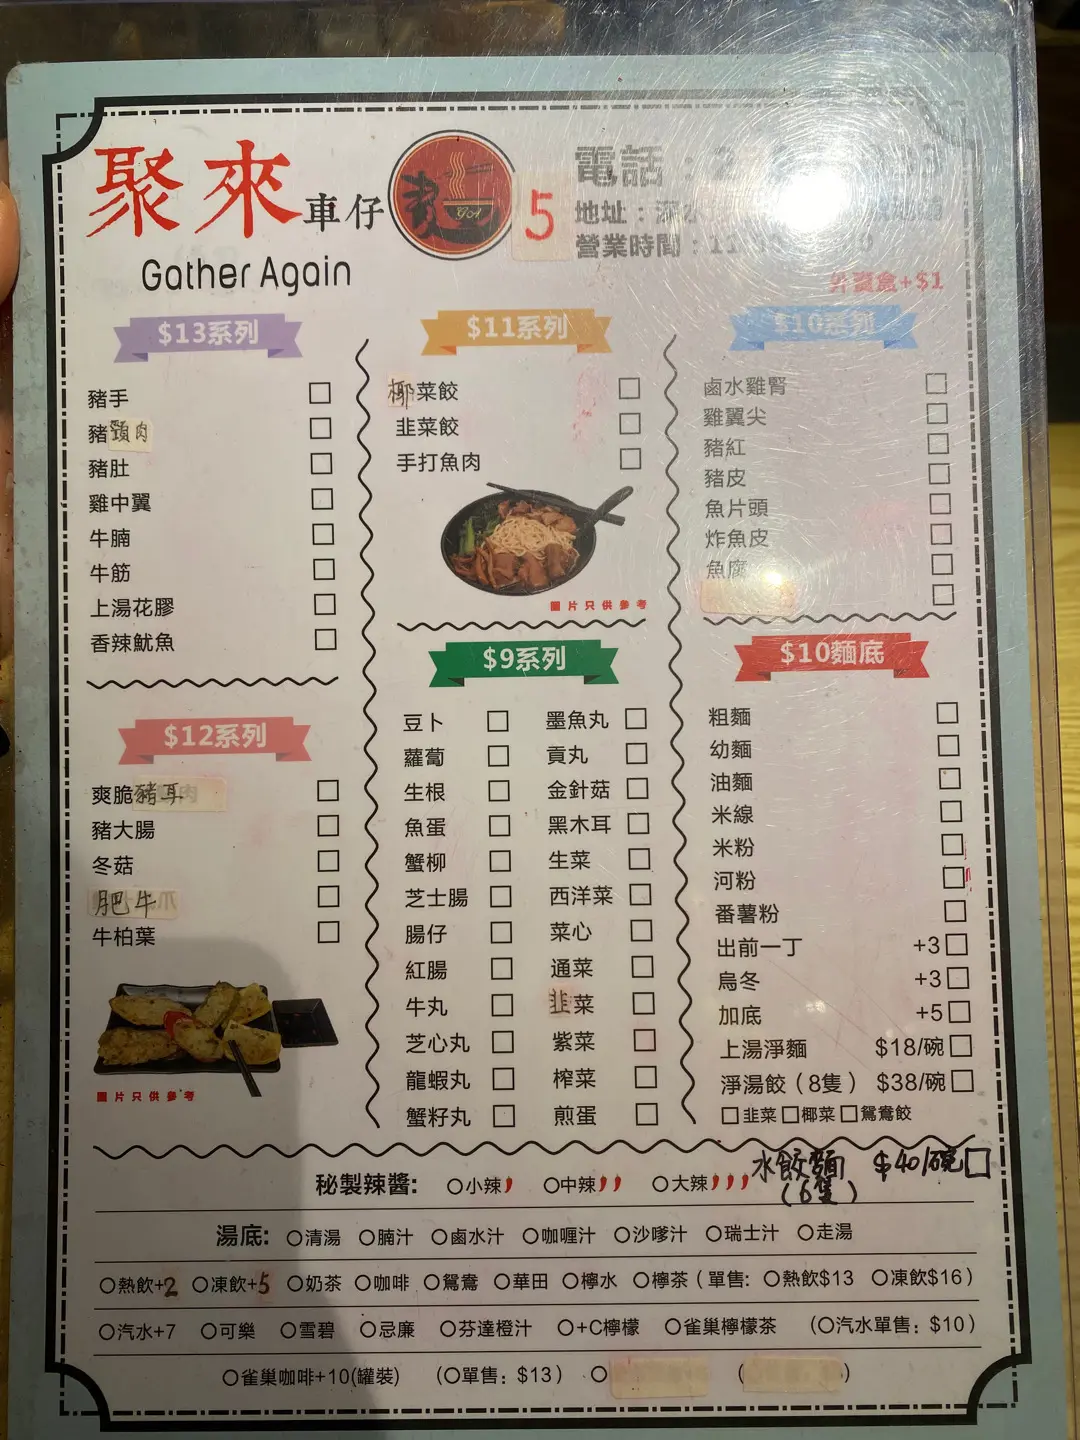 聚來車仔
Gather Again
5
電話：2
地址：深水
營業時間：11
外賣盒+$1
$13系列
豬手
豬頸肉
豬肚
雞中翼
牛腩
牛筋
上湯花膠
香辣魷魚
$12系列
爽脆豬耳
豬大腸
冬菇
肥牛
牛柏葉
圖片只供參考
$11系列
椰菜餃
韭菜餃
手打魚肉
圖片只供參考
$9系列
豆卜
蘿蔔
生根
魚蛋
蟹柳
芝士腸
腸仔
紅腸
牛丸
芝心丸
龍蝦丸
蟹籽丸
墨魚丸
貢丸
金針菇
黑木耳
生菜
西洋菜
菜心
通菜
韭菜
紫菜
榨菜
煎蛋
$10系列
鹵水雞腎
雞翼尖
豬紅
豬皮
魚片頭
炸魚皮
魚腐
$10麵底
粗麵
幼麵
油麵
米線
米粉
河粉
番薯粉
出前一丁 +3
烏冬 +3
加底 +5
上湯淨麵 $18/碗
淨湯餃（8隻） $38/碗
韭菜 椰菜 鴛鴦餃
水餃麵 $40/碗
(6隻)
秘製辣醬: 小辣 中辣 大辣
湯底: 清湯 腩汁 鹵水汁 咖喱汁 沙嗲汁 瑞士汁 走湯
熱飲+2 凍飲+5 奶茶 咖啡 鴛鴦 華田 檸水 檸茶（單售: 熱飲$13 凍飲$16）
汽水+7 可樂 雪碧 忌廉 芬達橙汁 +C檸檬 雀巢檸檬茶 (汽水單售: $10)
雀巢咖啡+10(罐裝) (單售: $13)